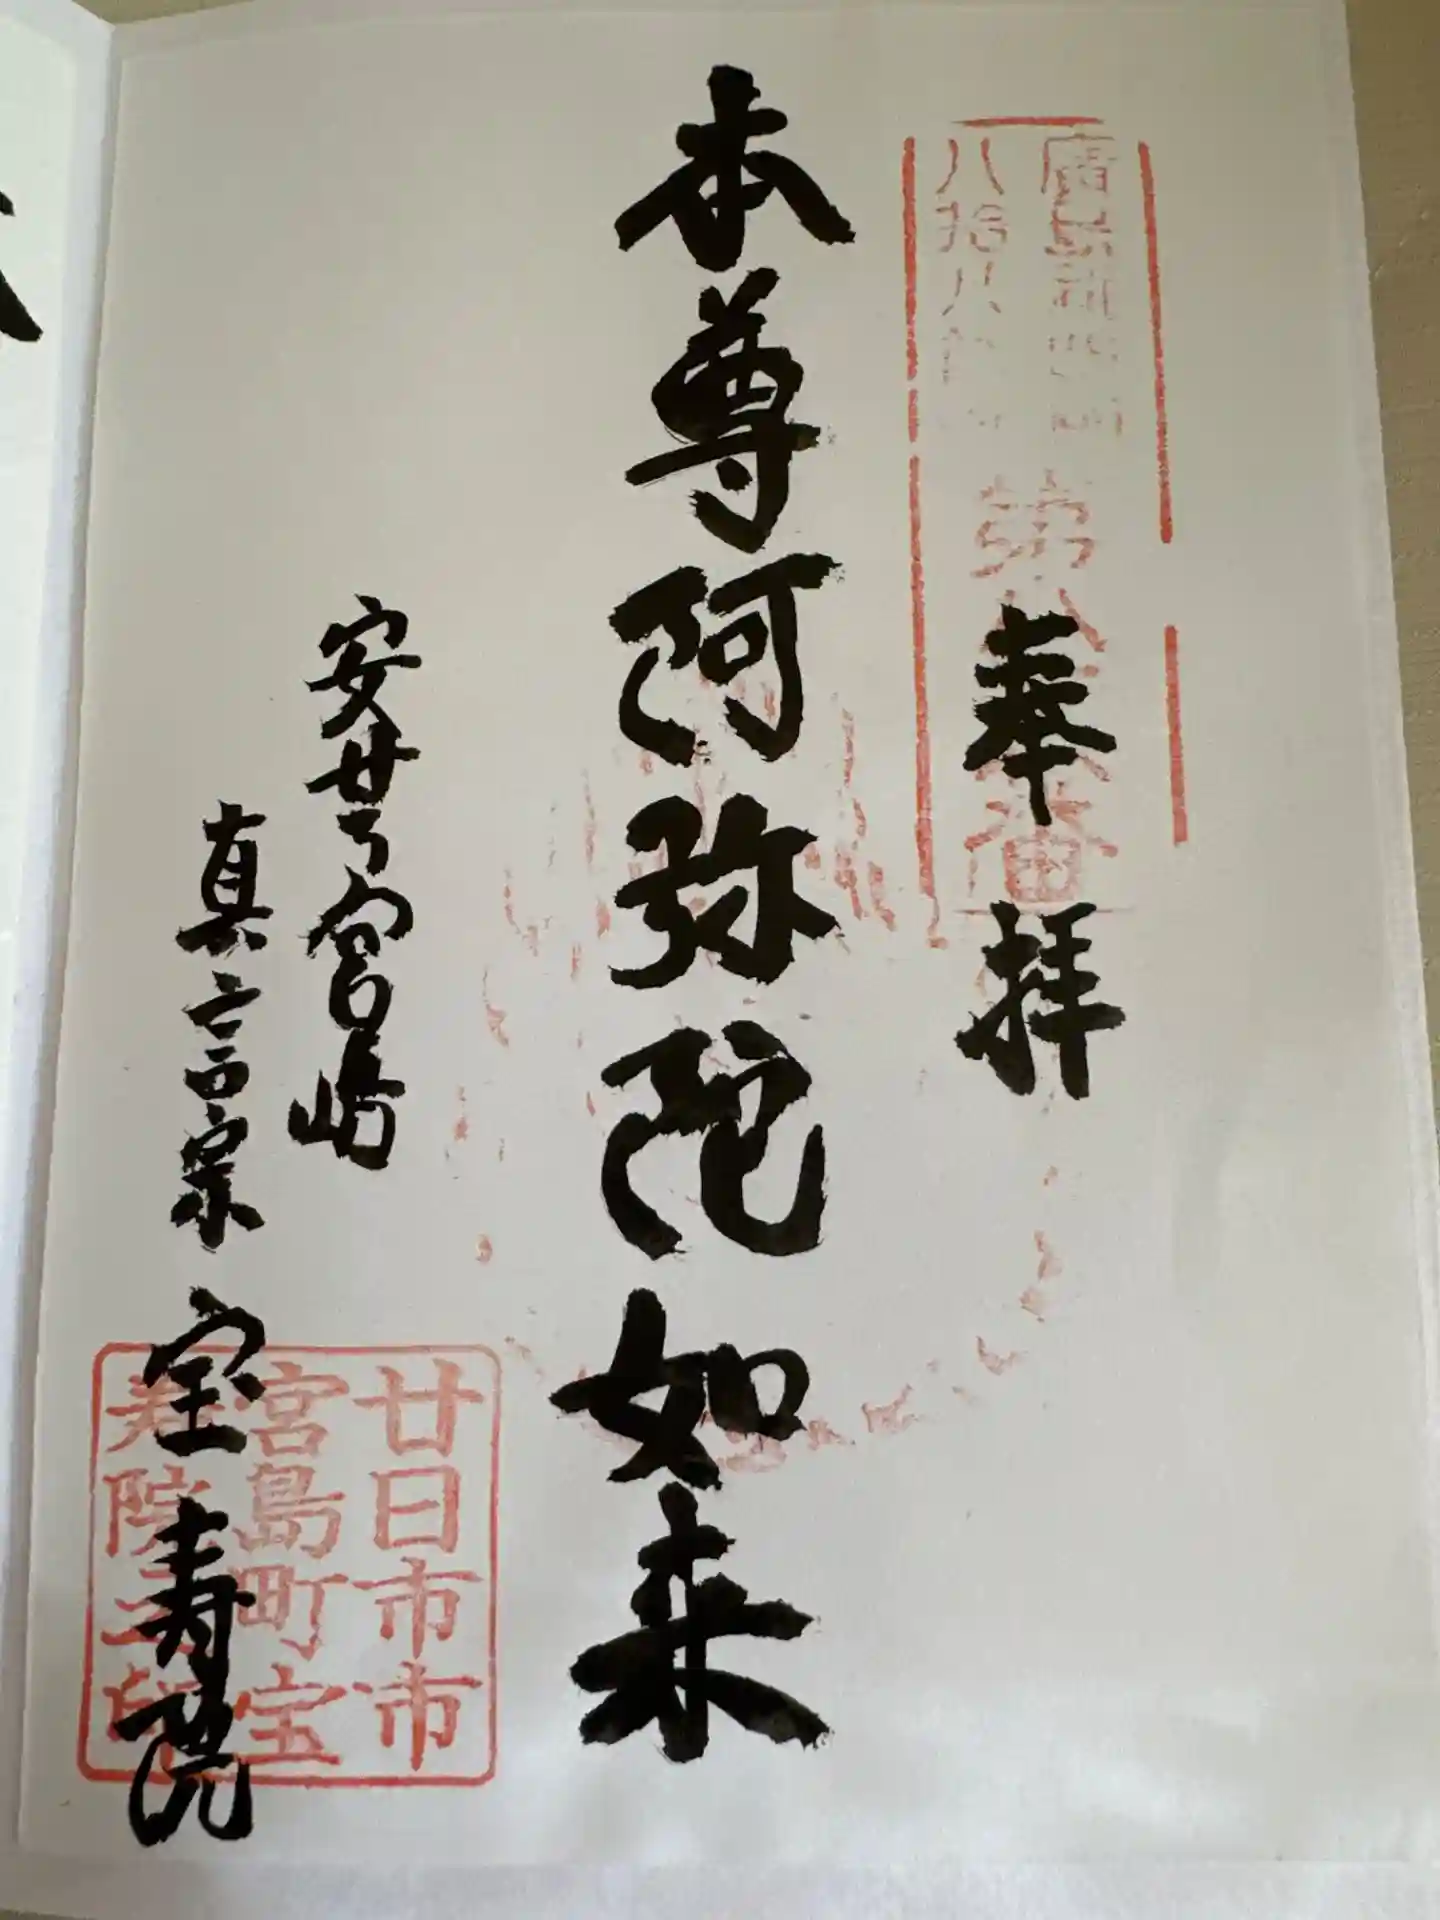 廣島新四国
八拾八ヶ所
第八
番
奉拝
本尊阿弥陀如来
安芸宮嶋
真言宗 宝寿院
廿日市市
宮島町宝
寿院之印